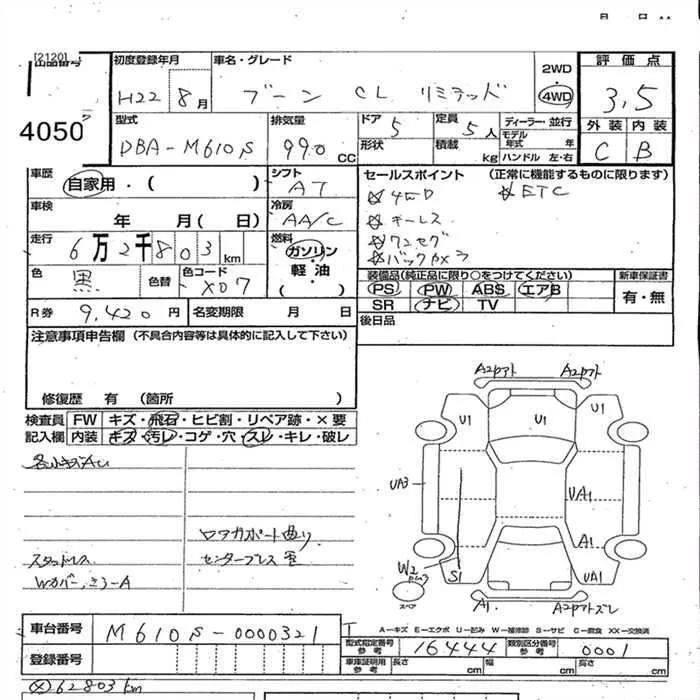 [2120]
初度登録年月 車名・グレード 2WD 評価点
H22 8月 ブーン CL リミテッド 4WD 3,5
4050
型式 排気量 ドア 定員 ディーラー・並行 外装 内装
DBA-M610S 990 CC 5 5人 モデル年式 年 C B
形状 積載 kg ハンドル 左・右
車歴 シフト セールスポイント (正常に機能するものに限ります)
自家用・( ) AT ☆4WD ☆ETC
車検 冷房 ☆キーレス
年 月( 日) AA/C ☆ワンセグ
走行 燃料 ☆バックカメラ
6万2千803km ガソリン・軽油・( )
装備品(純正品に限り○をつけてください) 新車保証書
色 黒 色替 色コード X07
PS PW ABS エアB 有・無
SR ナビ TV
R券 9,420円 名変期限 月 日 後日品
注意事項申告欄 (不具合内容等は具体的に記入して下さい)
修復歴 有 (箇所 )
検査員 FW キズ・飛石・ヒビ割・リペア跡・×要
記入欄 内装 キズ・汚レ・コゲ・穴・スレ・キレ・破レ
スタッドレス
ロアサポート曲り
A2Pアト A2Pアト
U1 U1 U1
UA3 UA1
A1
W2
S1 UA1
スペア
A1 A2Pアトズレ
車台番号 M610S-0000321
A-キズ E-エクボ U-凹み W-補修跡 S-サビ C-腐食 XX-交換済
型式指定番号 参考 16444 類別区分番号 参考 0001
登録番号 車庫証明用 参考 長さ cm 幅 cm 高さ cm
62803km